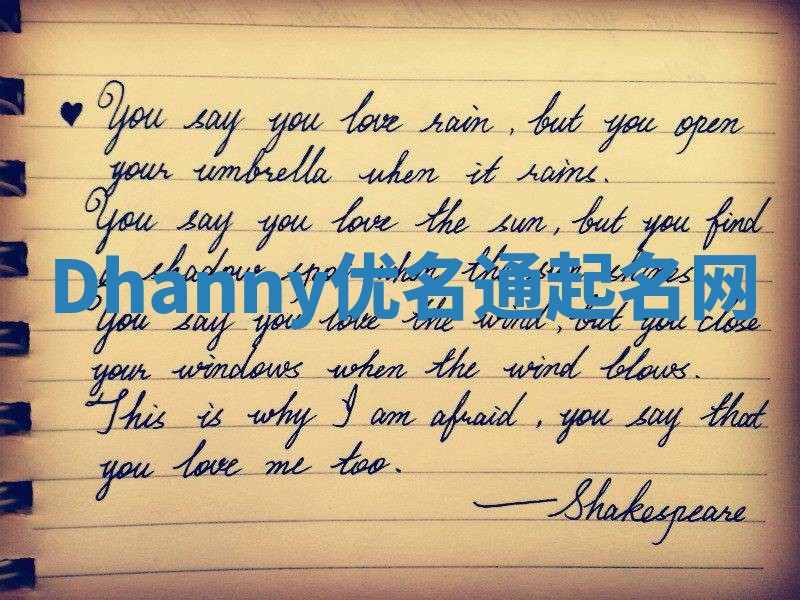 ♥ You say you love rain, but you open
your umbrella when it rains.
You say you love the sun, but you find
a shadow spot when the sun shines
Dhanny优名通起名网
You say you love the wind, but you close
your windows when the wind blows.
This is why I am afraid, you say that
you love me too.
— Shakespeare